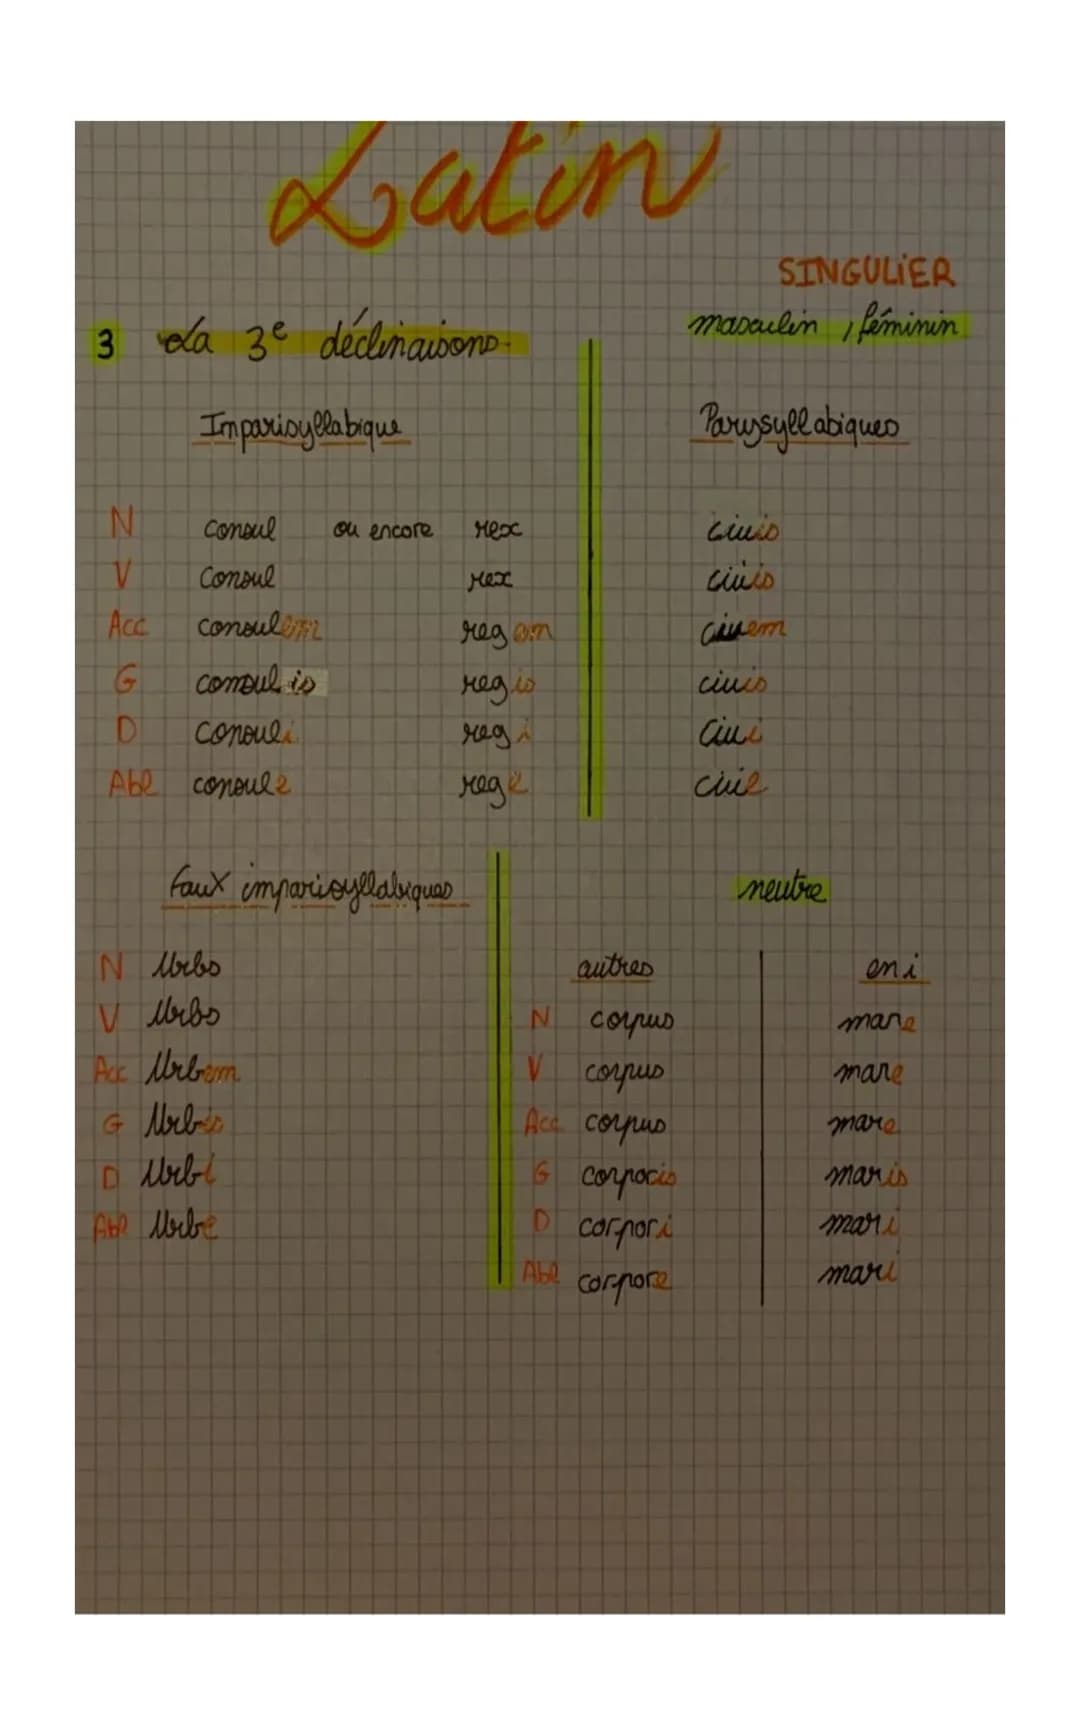 Latin
SINGULIER
masculin, féminin
3 La 3e déclinaisons.
Imparisyllabique
Parysyllabiques
N consul ou encore rex
V Consul rex
Acc consulem regem
G consul is regis
D consuli regi
Abl consule rege
civis
civis
civem
civis
civi
cive
Faux imparisyllabiques
N Urbs
V Urbs
Acc Urbem
G Urbis
D Urbi
Abl Urbe
neutre
autres
N corpus
V corpus
Acc corpus
G corporis
D corpori
Abl corpore
en i
mare
mare
mare
maris
mari
mari